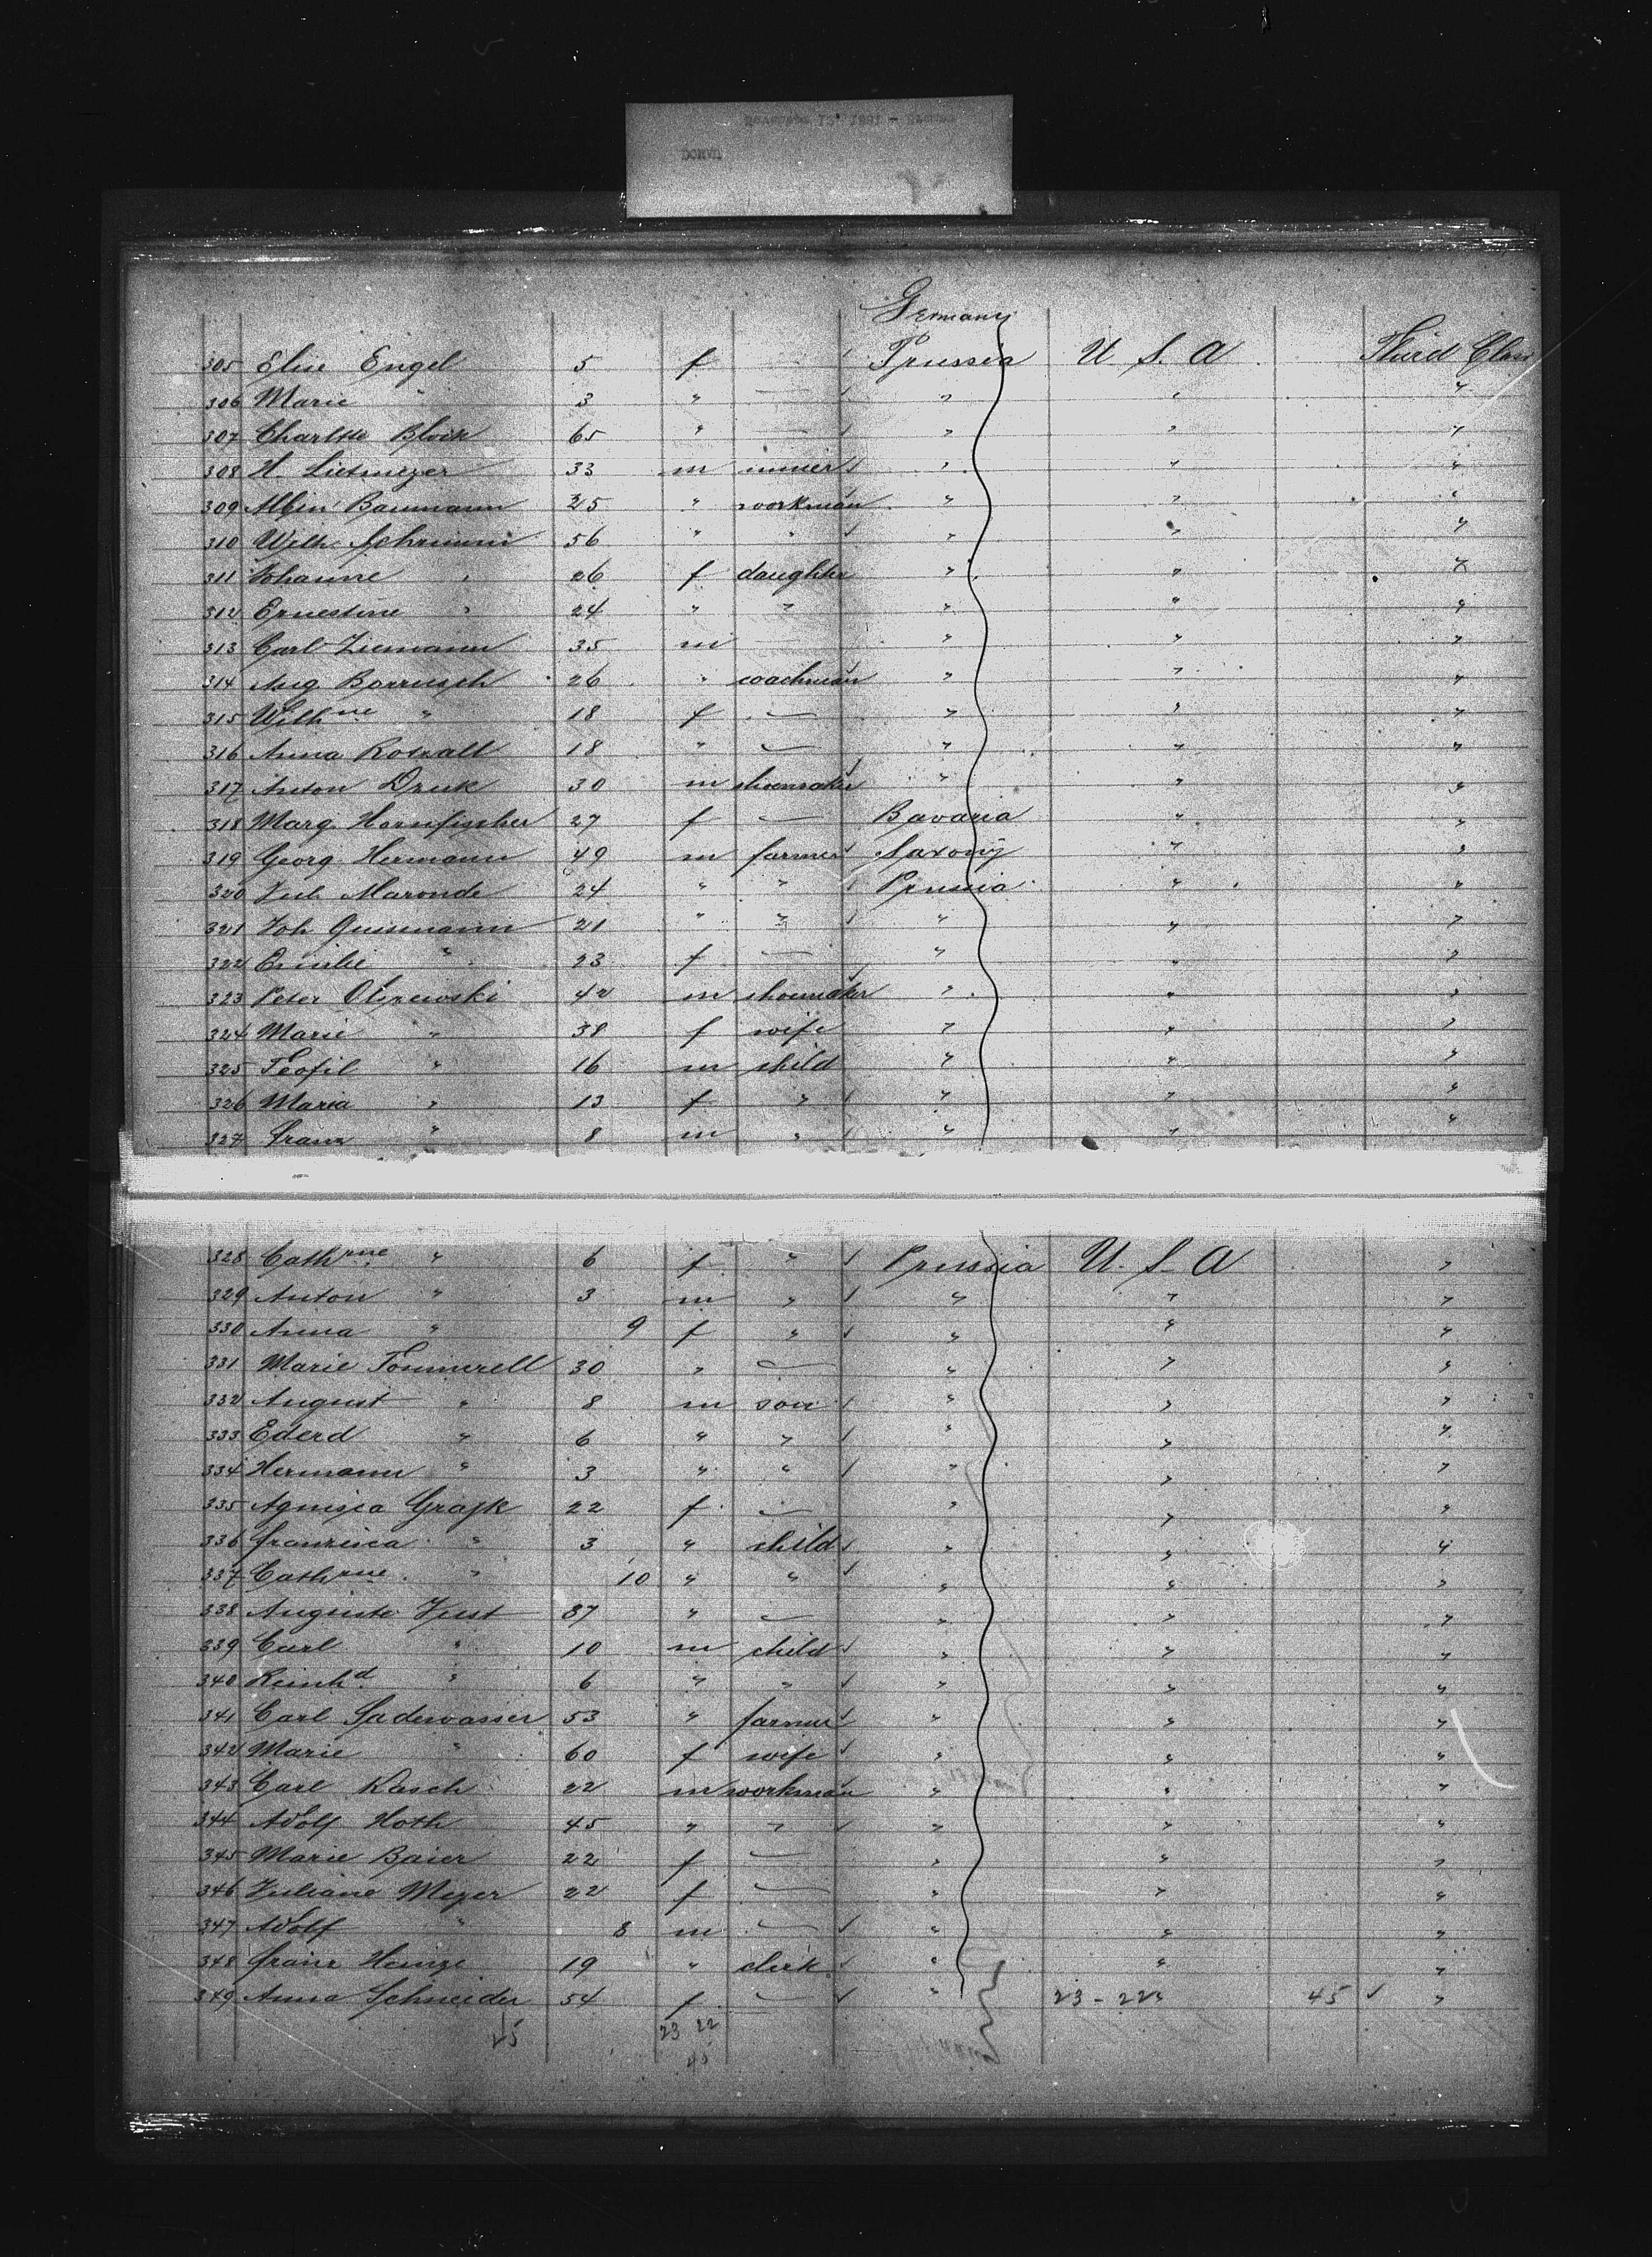 Donau
Germany
305 Elise Engel 5 f Prussia U. S. A. Third Class
306 Marie " 3 " — " " "
307 Charltte Block 65 " — " " "
308 H. Lietmeyer 33 m miner " " "
309 Albin Baumann 25 " workman " " "
310 Wilh. Schrumm 56 " " " " "
311 Johanne " 26 f daughter " " "
312 Ernestine " 24 " " " " "
313 Carl Ziemann 35 m — " " "
314 Aug. Borrusch 26 " coachman " " "
315 Wilhne " 18 f — " " "
316 Anna Kowall 18 " — " " "
317 Anton Druk 30 m shoemaker " " "
318 Marg. Hornfischer 27 f — Bavaria " "
319 Georg Hermann 49 m farmer Saxony " "
320 Jul. Maronde 24 " " Prussia " "
321 Joh. 21 " " " " "
322 Emilie " 23 f — " " "
323 Peter Olszewski 42 m shoemaker " " "
324 Marie " 38 f wife " " "
325 Teofil " 16 m child " " "
326 Maria " 13 f " " " "
327 Franz " 8 m " " " "
328 Cathrine " 6 f " Prussia U. S. A "
329 Anton " 3 m " " " "
330 Anna " 9 f " " " "
331 Marie Tommerell 30 " — " " "
332 August " 8 m son " " "
333 Ederd " 6 " " " " "
334 Hermann " 3 " " " " "
335 Agnisca Grajk 22 f — " " "
336 Franzisca " 3 " child " " "
337 Cathrine " 10 " " " " "
338 Auguste Just 37 " — " " "
339 Carl " 10 m child " " "
340 Reinhd " 6 " " " " "
341 Carl Sadewasser 53 " farmer " " "
342 Marie " 60 f wife " " "
343 Carl Rasch 22 m workman " " "
344 Adolf Hoth 45 " " " " "
345 Marie Baier 22 f — " " "
346 Juliane Meyer 22 f — " " "
347 Adolf " 8 m — " " "
348 Franz Heinze 19 " clerk " " "
349 Anna Schneider 54 f — " 23 - 22 45 "
45 23 22
45